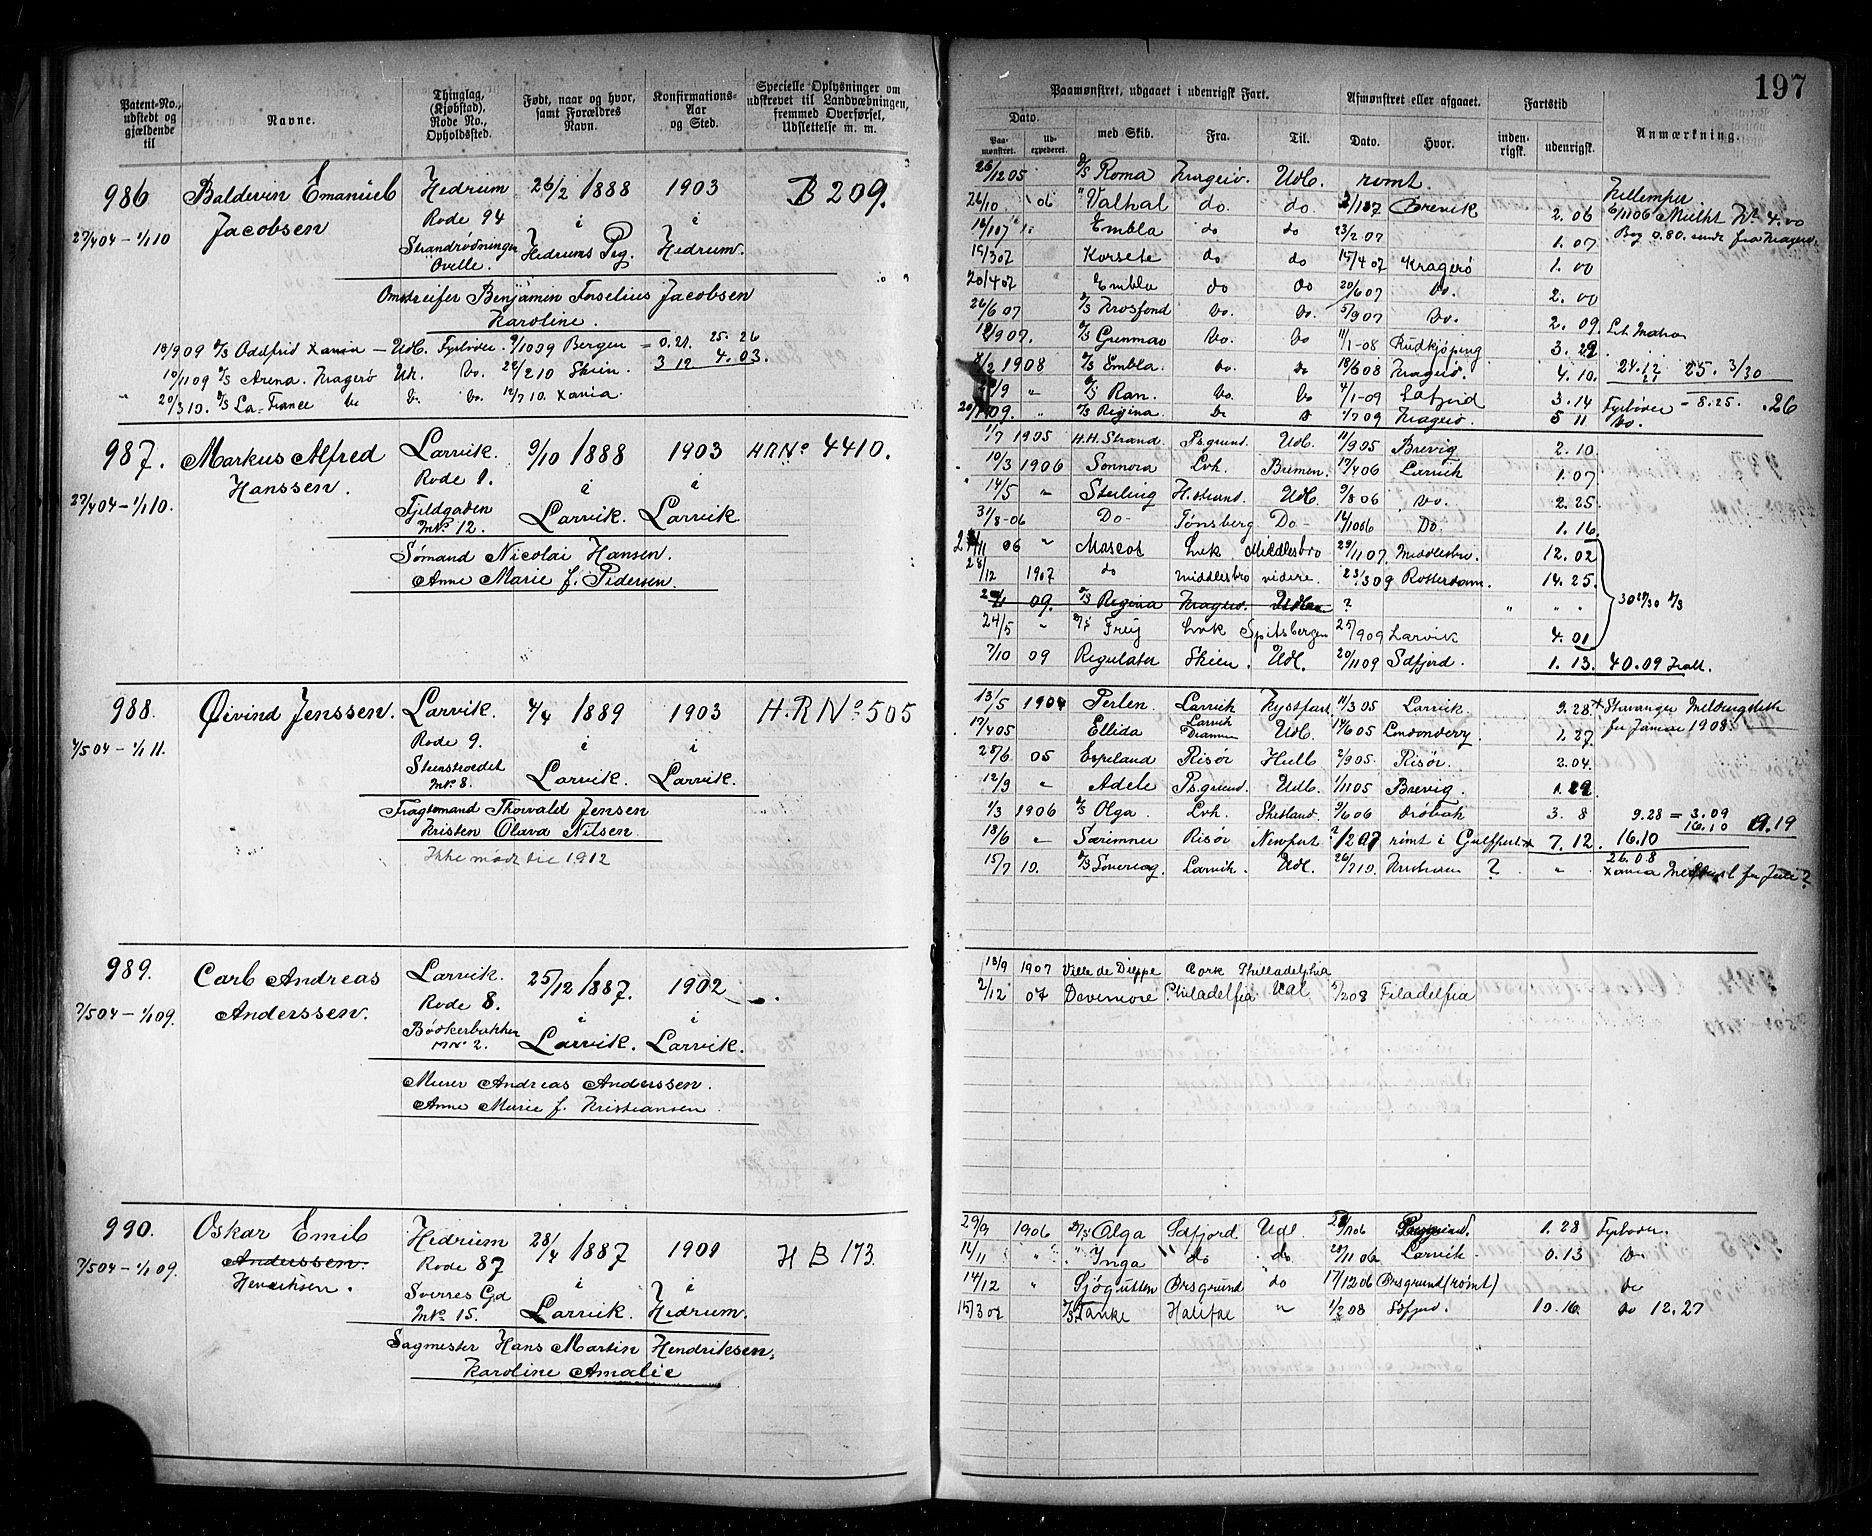 197
Patent-No., udstedt og gjældende til
Navne.
Thinglag, (Kjøbstad), Rode No., Opholdssted.
Født, naar og hvor, samt Forældres Navn.
Konfirmations-Aar og Sted.
Specielle Oplysninger om udskrevet til Landvæbningen, fremmed Overførsel, Udslettelse m. m.
Paamønstret, udgaaet i udenrigsk Fart.
Dato.
Paa-mønstret.
Ud-expederet.
med Skib.
Fra.
Til.
Afmønstret eller afgaaet.
Dato.
Hvor.
Fartstid
inden-rigsk.
udenrigsk.
Anmærkning.
986 Baldevin Emanuel Hedrum 26/2 1888 1903 B 209.
Jacobsen Rode 94 i i
27/4 04 – 1/1 10 Hedrums Prg. Hedrum.
Benjamin Torselius Jacobsen
Karoline.
10/9 09 D/S Oddfrid Xania – Udl. Fyrbøder 9/10 09 Bergen – 0.21. 25.26
10/11 09 D/S Arena. Kragerø Do. 22/2 10 Skien. 3 12 4.03.
20/3 10. D/S La France Do. 12/7 10. Xania.
26/12 05 D/S Roma Kragerø. Udl. rømt.
26/10 06 " Valhal do. do Brevik 2.06
Embla do do 23/2 07 1.07
19/3 07 Korsete do do 15/4 07 Kragerø 1.00
20/4 07 Embla do do 20/6 07 Do. 2.00
26/6 07 D/S Krosfond Do. Do. 5/9 07 Do. 2.09
D/S Grenmar Do. Do 11/1-08 Rudkjøping 3.29
8/2 1908 D/S Embla. do. do 18/6 08 Kragerø. 4.10.
D/S Ran. Do. Do 4/1-09 Safjord 3.14 Fyrbøder – 8.25. .26
D/S Regina. Do 1/7 09 Kragerø. 5 11 Do.
987. Markus Alfred Larvik. 9/10 1888 1903 HRNo 4410.
Hanssen. Rode 1. i i
27/4 04 – 1/1 10. Fjeldgaden Larvik. Larvik
MNo. 12.
Sømand Nicolai Hansen.
Anne Marie f. Pedersen.
11/7 1905 H.H. Strand. Psgrund. Udl. 11/9 05 Brevig 2.10.
10/3 1906 Sonnora Lvk. Bremen. 17/4 06 Larvik 1.07
14/5 " Sterling H.strand. Udl. 9/8 06 Do. 2.25
31/8-06 Do- Tønsberg Do- 14/10 06 Do. 1.16
06 " Mascot Lvk Middlesbro 29/11 07 Middlesbro. 12.02
28/12 1907 do Middlesbro videre. 23/3 09 Rotterdam. 14.25. 30 27/30
09. D/S Regina Kragerø. Udl. ? " " "
24/5 " D/S Frey Lvk Spitsbergen 25/9 09 Larvik 4.01
7/10 09 Regulator Skien. Udl. 20/11 09 Sdfjord. 1.13. 40.09 Ialt.
988. Øivind Jenssen. Larvik. 4/4 1889 1903 H.R No 505
Rode 9. i i
4/5 04 – 1/1 11. Larvik. Larvik.
MNo. 8.
Fragtemand Thorvald Jensen
Kristen Olava Nilsen.
Ikke mødt til 1912
13/5 1904 Perlen. Larvik Kystfart. 11/3 05 Larvik. 9.28 + Stavanger Meldingsliste
17/4 05 Ellida Larvik Udl. 14/6 05 Londonderry. 1.27. for Januar 1908.
28/6 05 Espeland Risør Hull 2/9 05. Risør. 2.04.
12/9 " Adele Ps.grund. Udl. 1/11 05 Brevig. 1.29
1/3 1906 D/S Olga. Lvk. Shetland. 9/6 06 Drøbak 3. 8 9.28 = 3.09
18/6 " Særimner Risør Newport rømt i Gulfport + 7.12. 16.10 16.10 0.19
15/7 10. D/S Sovereig. Larvik. Udl. 26/7 10. Kristian ? " 26.08
989. Carl Andreas Larvik. 25/12 1887. 1902
Anderssen. Rode 8. i i
7/5 04 – 1/1 09. Bødkerbakken Larvik. Larvik.
MNo 2.
Murer Andreas Anderssen.
Anne Marie f. Kristiansen.
13/9 1907 Ville de Dieppe Cork Philladelphia
2/12 07 Devemore Philadelfia Ual 2/2 08 Filadelfia
990. Oskar Emil Hedrum 28/4 1887 1901 H B 173.
Anderssen. Rode 87 i i
7/5 04 – 1/1 09. Henriksen. Sverres Gd Larvik. Hedrum.
MNo 15.
Sagmester Hans Martin Hendriksen,
Karoline Amalie
29/9 1906 D/S Olga Sdfjord Udl Porsgrund. 1.28 Fyrbøder.
14/11 " " Inga " do do 28/11 06 Larvik. 0.13 Do
14/12 " Sjøgutten Porsgrund do 17/12 06 Porsgrund (rømt) do
15/3 07 D/S Tanke Halifax " 1/2 08 Sdfjord. 10.16 Do 12.27